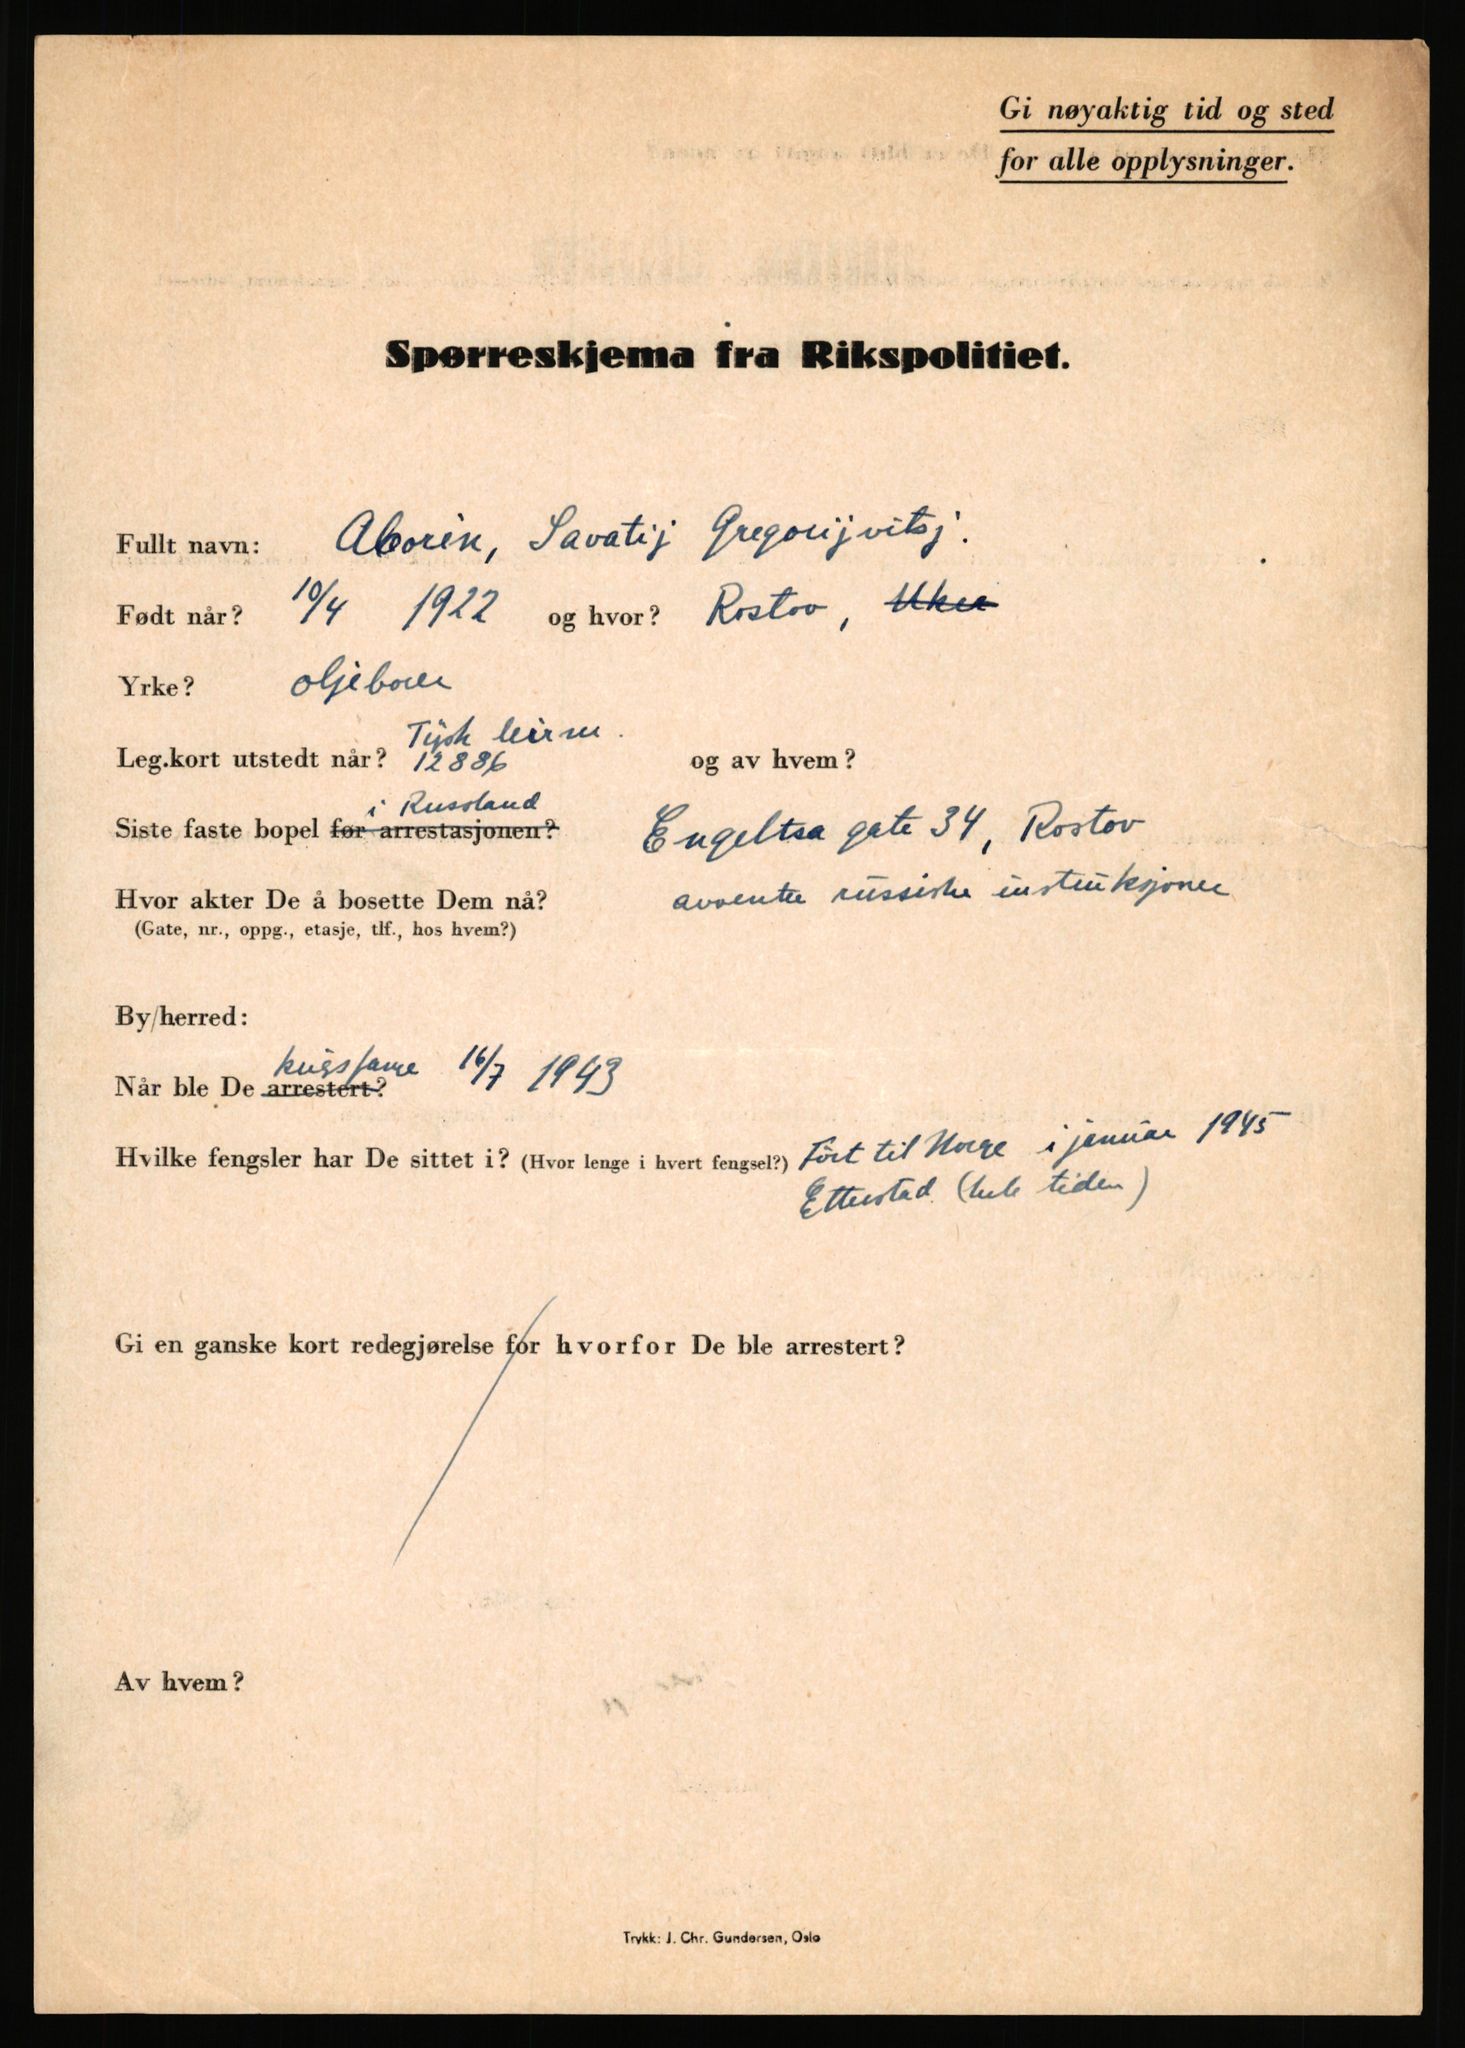 Gi nøyaktig tid og sted
for alle opplysninger.
Spørreskjema fra Rikspolitiet.
Fullt navn: Aborin, Savatij Gregorijvitsj.
Født når? 10/4 1922 og hvor? Rostov, Uker
Yrke? oljeborer
Tysk leirnr.
Leg.kort utstedt når? 12886 og av hvem?
i Russland
Siste faste bopel før arrestasjonen? Engeltsa gate 34, Rostov
Hvor akter De å bosette Dem nå? avventer russiske instruksjoner
(Gate, nr., oppg., etasje, tlf., hos hvem?)
By/herred:
krigsfange 16/7 1943
Når ble De arrestert?
Hvilke fengsler har De sittet i? (Hvor lenge i hvert fengsel?) Ført til Norge i januar 1945
Etterstad (hele tiden)
Gi en ganske kort redegjørelse for hvorfor De ble arrestert?
Av hvem?
Trykk: J. Chr. Gundersen, Oslo